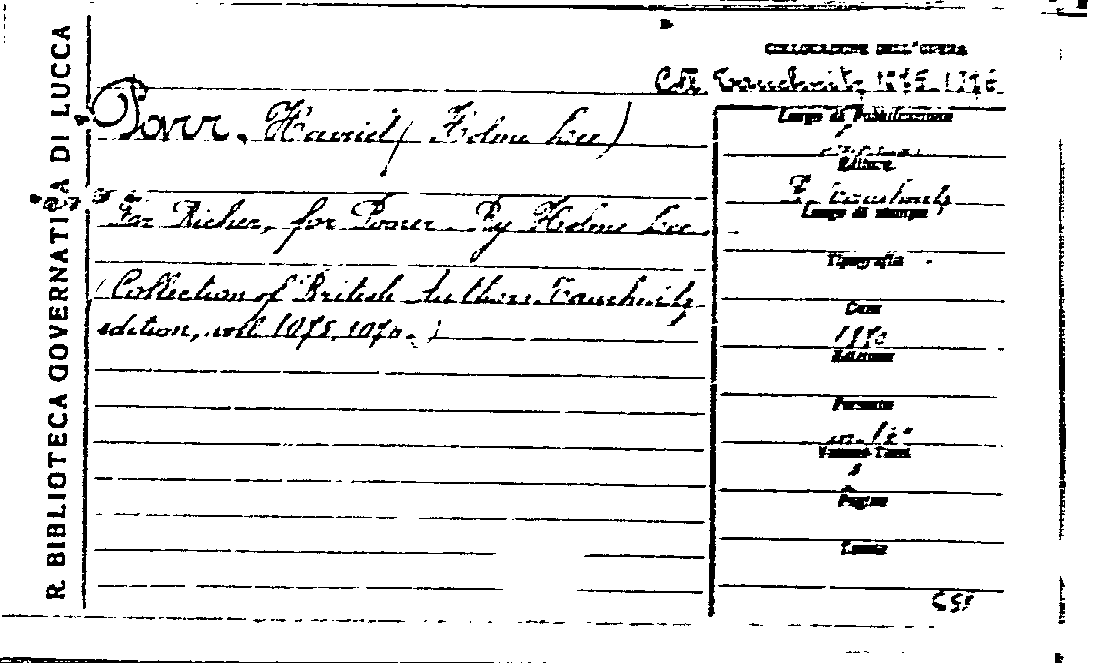 R. BIBLIOTECA GOVERNATIVA DI LUCCA
COLLOCAZIONE DELL'OPERA
Coll. Tauchnitz 1075-1076
Parr, Harriet (Holme Lee)
For Richer, for Poorer. By Holme Lee.
(Collection of British Authors. Tauchnitz
edition, voll. 1075, 1076.)
Luogo di Pubblicazione
Editore
B. Tauchnitz
Luogo di stampa
Tipografia
Data
1870
Edizione
Formato
in-16°
Volumi-Tomi
Pagine